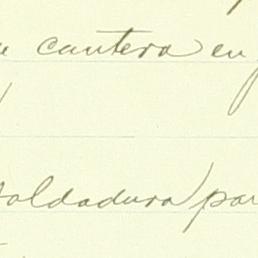 cantera en
soldadura par